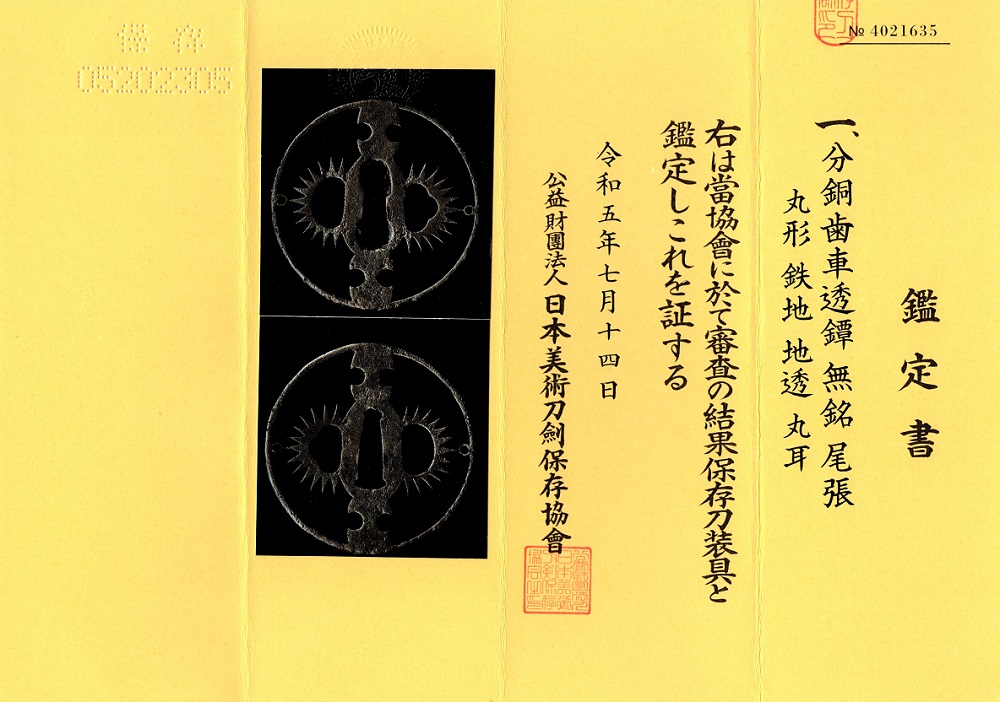 № 4021635
鑑定書
一、分銅歯車透鐔 無銘 尾張
丸形 鉄地 地透 丸耳
右は當協會に於て審査の結果保存刀装具と
鑑定しこれを証する
令和五年七月十四日
公益財團法人 日本美術刀劍保存協會
保存
05202305